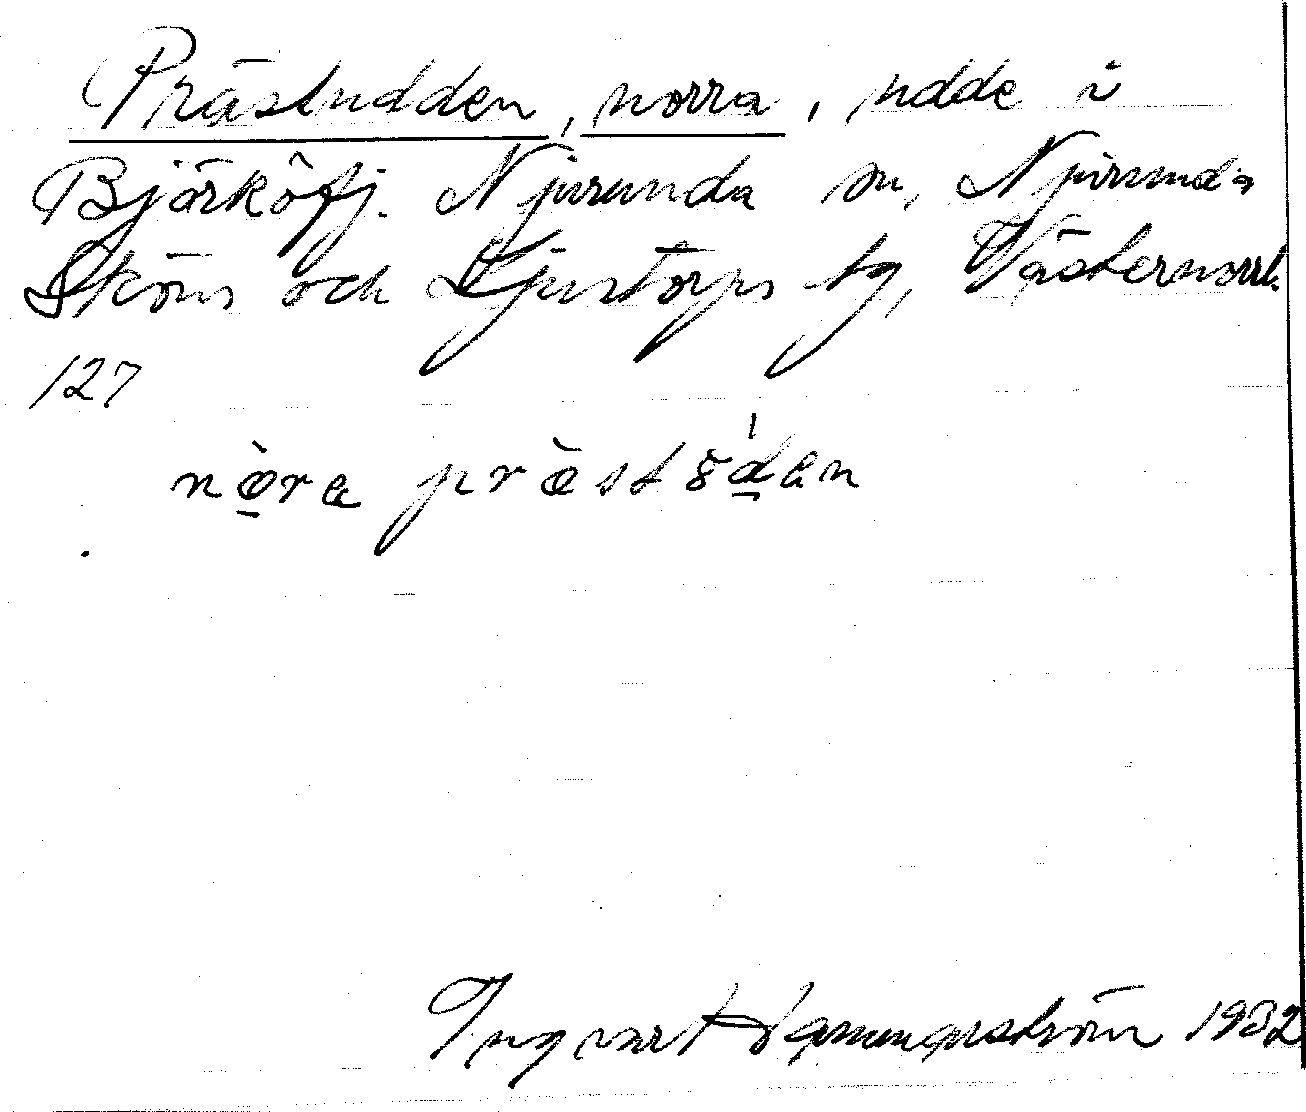 Prästudden, norra, udde i
Björköfj. Njurunda sn, Njurunda
Sköns och Ljustorps tg, Västernorrl.
127
nòra pràst
Ingvar Hammarström 1932